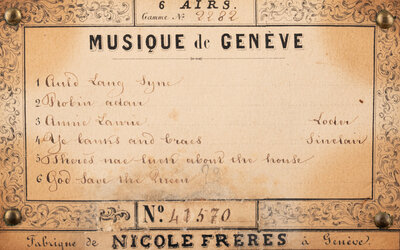 6 AIRS.
Gamme No. 2282
MUSIQUE de GENÈVE
1 Auld Lang Syne
2 Robin adair
3 Annie Laurie Loder
4 Ye banks and braes Sinclair
5 Theres nae luck about the house
6 God Save the Queen
No. 41570
Fabrique de NICOLE FRÈRES à Genève.